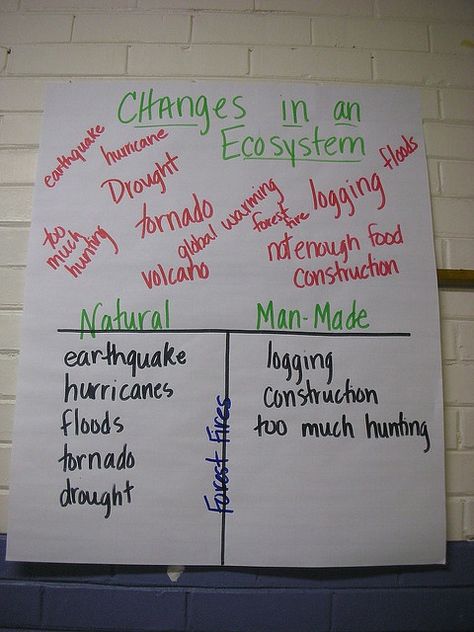 CHAnges in an
Ecosystem
earthquake
hurricane
Drought
floods
too
much
hunting
tornado
global warming
forest
fire
logging
volcano
not enough food
construction
Natural
Man-Made
earthquake
hurricanes
floods
tornado
drought
Forest Fires
logging
construction
too much hunting